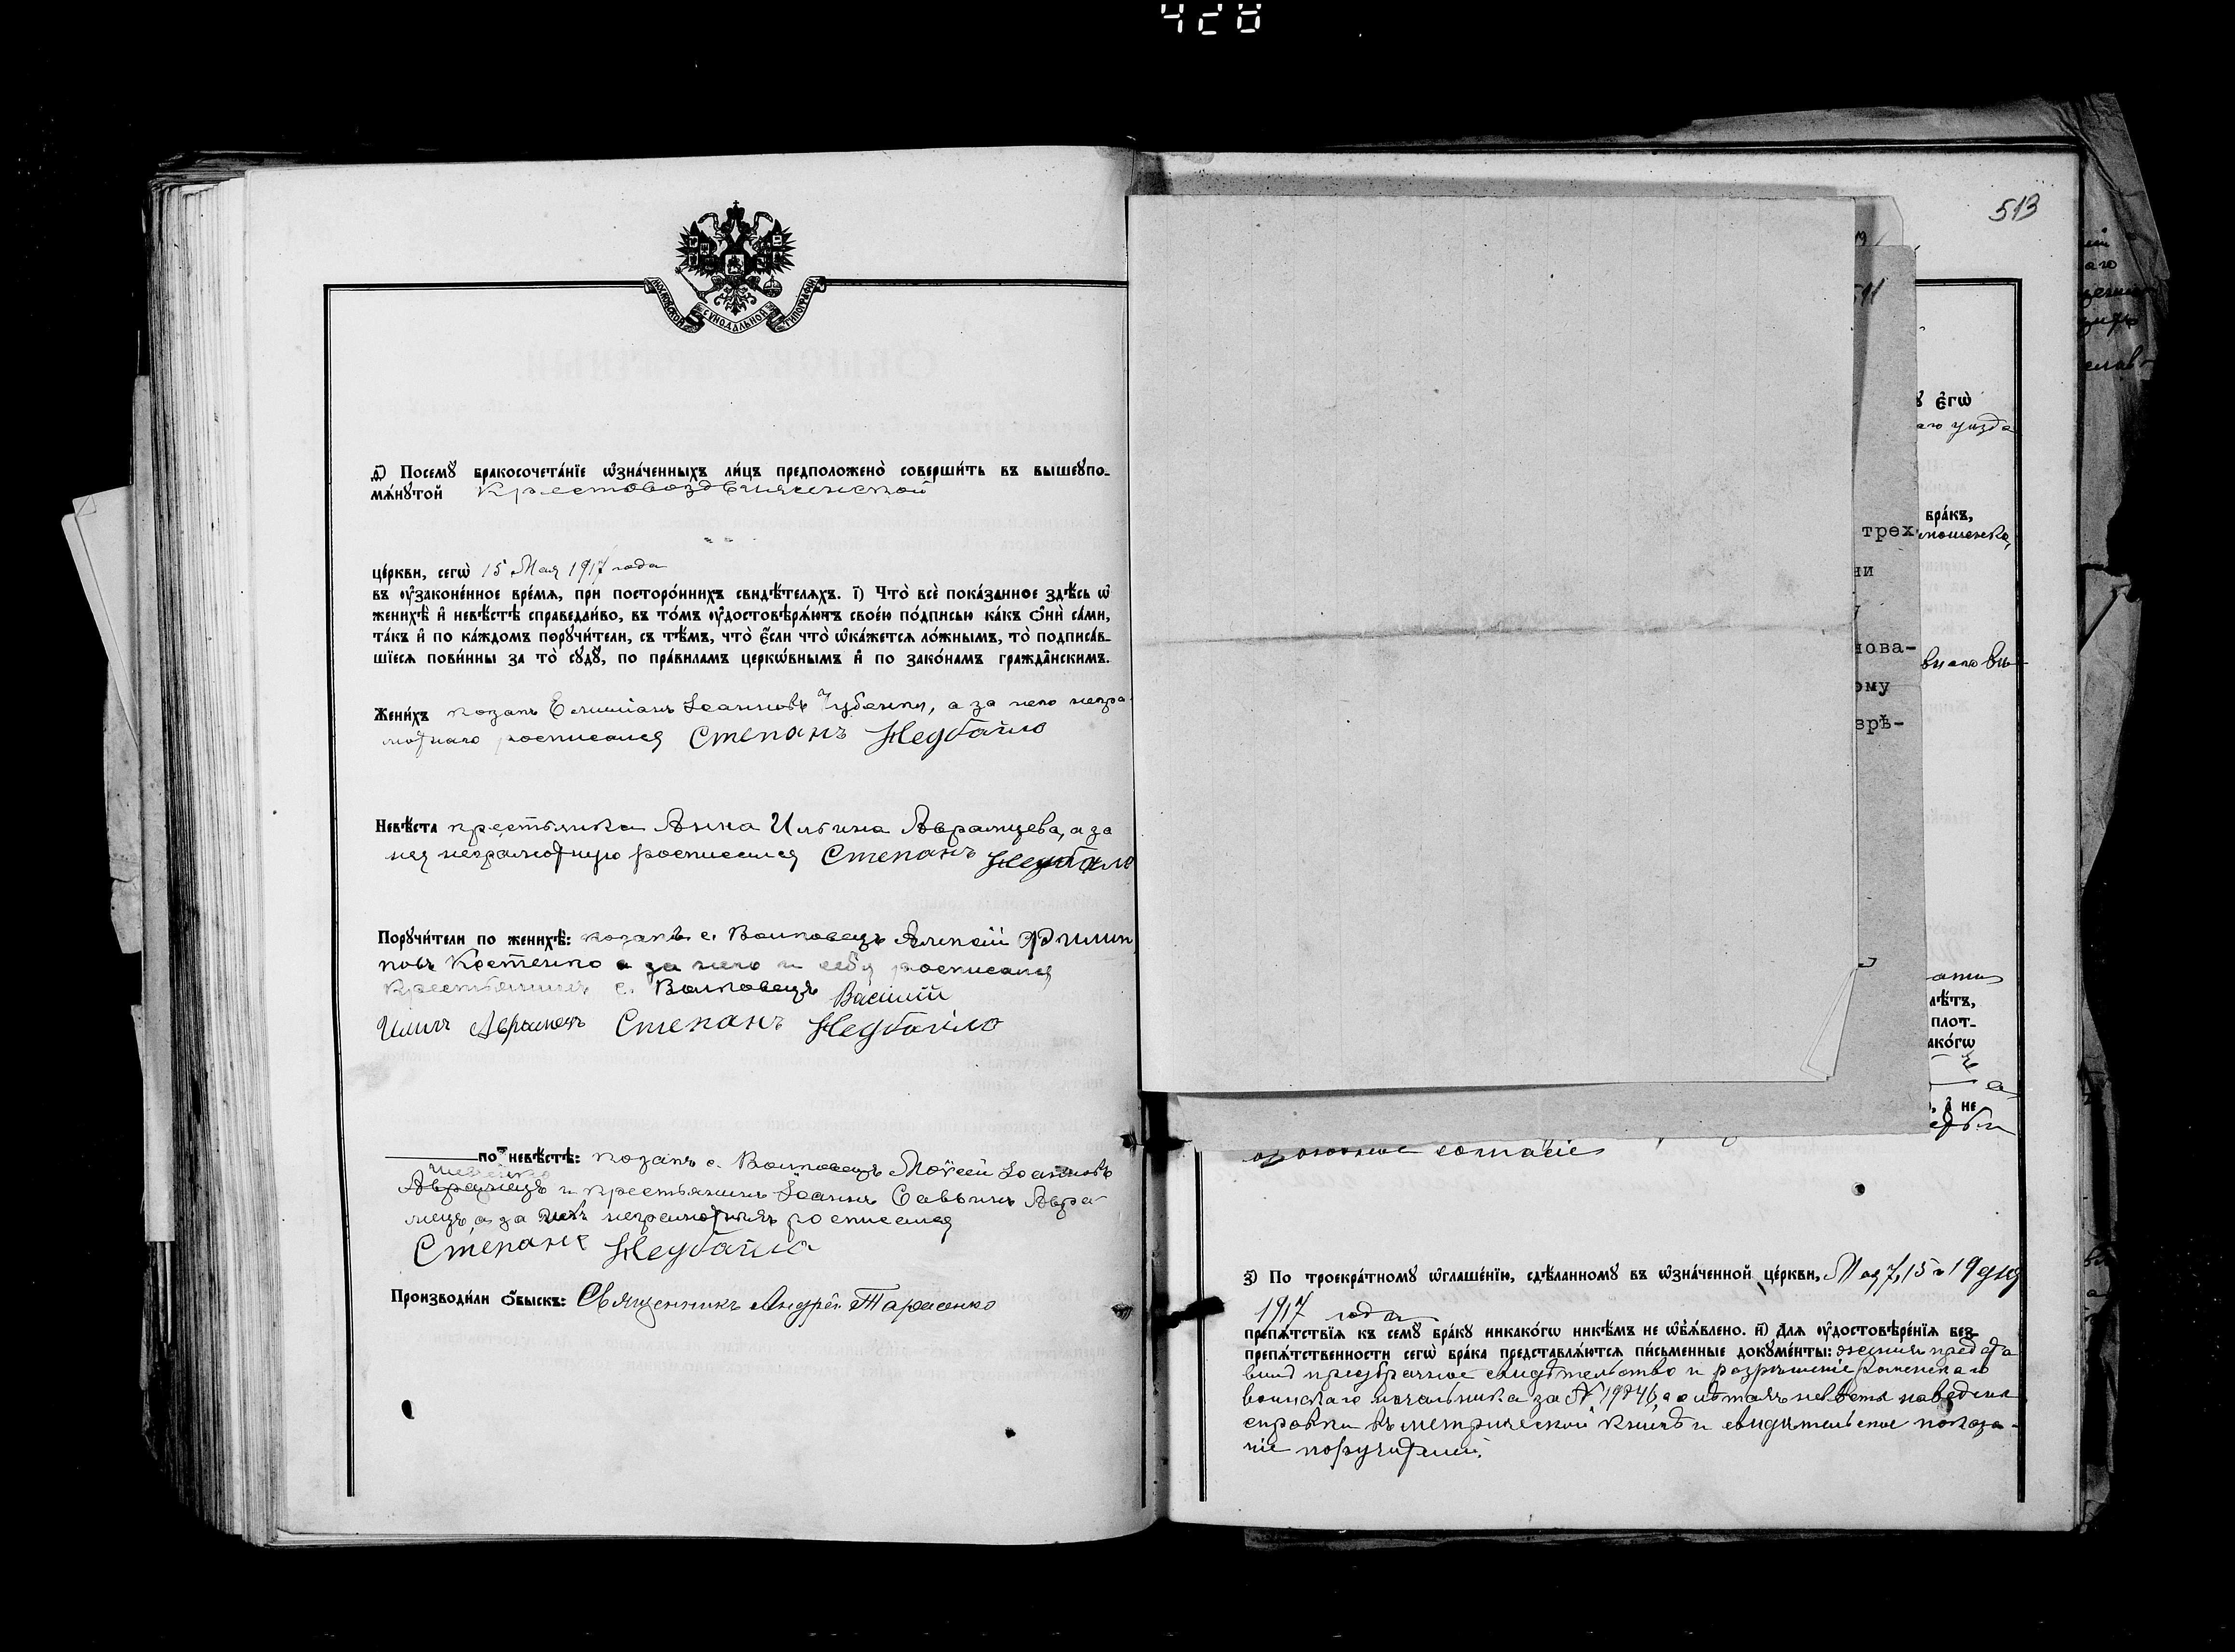 428
МОСКОВСКОЙ СѴНОДАЛЬНОЙ ТИПОГРАФІИ
д҃) Посемꙋ̀ бракосочета́нїе ѡ҆зна́ченныхъ ли́цъ предположено̀ соверши́ть въ вышеꙋпо-
мѧ́нꙋтой Крестовоздвиженской
це́ркви, сегѡ̀ 15 Мая 1917 года
въ ᲂу҆зако́ненное вре́мѧ, при посторо́ннихъ свидѣ́телѧхъ. і҃) Что̀ всѐ пока́занное здѣ́сь ѡ҆
женихѣ̀ и҆ невѣ́стѣ справедли́во, въ то́мъ ᲂу҆достовѣрѧ́ютъ свое́ю по́дписью ка́къ ѻ҆нѝ са́ми,
та́къ и҆ по ка́ждомъ порꙋчи́тели, съ тѣ́мъ, что̀ є҆́сли что̀ ѡ҆ка́жетсѧ ло́жнымъ, то̀ подписа́в-
шїесѧ пови́нны за то̀ сꙋдꙋ̀, по пра́виламъ церкѡ́внымъ и҆ по зако́намъ гражда̑нскимъ.
Жени́хъ козакъ Емиліанъ Іоанновъ Губенко, а за него негра-
мотнаго росписался Степанъ Недбайло
Невѣ́ста крестьянка Анна Ильина Аврамцева, а за
нея неграмотную росписался Степанъ Недбайло
Порꙋчи́тели по женихѣ̀: козакъ с. Волковецъ Алексій Филип
повъ Костенко а за него и себя росписался
крестьянинъ с. Волковецъ Василій
Илличъ Аврамецъ Степанъ Недбайло
по невѣ́стѣ: козакъ с. Волковецъ Моѵсей Іоанновъ
Аврамецъ и крестьянинъ Іоаннъ Саввинъ Авра-
мецъ, а за нихъ неграмотныхъ росписался
Степанъ Недбайло
Производи́ли ѻ҆́быскъ: Священникъ Андрей Тарасенко
513
511
ꙋ є҆гѡ̀
аго уѣзда
бра́къ,
трех
мошенко,
ни
нова-
ому
зрѣ-
лѣ́тъ,
плот-
ако́гѡ
а
, а҆ не
согласіе
з҃) По троекра́тномꙋ ѡ҆глаше́нїю, сдѣ́ланномꙋ въ ѡ҆зна́ченной це́ркви, Мая 7, 15 и 19 дня
1917 года
препѧ́тствїѧ къ семꙋ̀ бра́кꙋ никако́гѡ никѣ́мъ не ѡ҆б̾ѧ́влено. и҃) Длѧ ᲂу҆достовѣре́нїѧ без-
препѧ́тственности сегѡ̀ бра́ка представлѧ́ютсѧ пи́сьменные докꙋме́нты: женихъ предста
вилъ предбрачное свидѣтельство и разрѣшеніе Роменскаго
воинскаго начальника за № 19846, а о лѣтахъ невѣсты наведена
справка въ метрической книгѣ и свидѣтельское показа-
ніе поручителей.